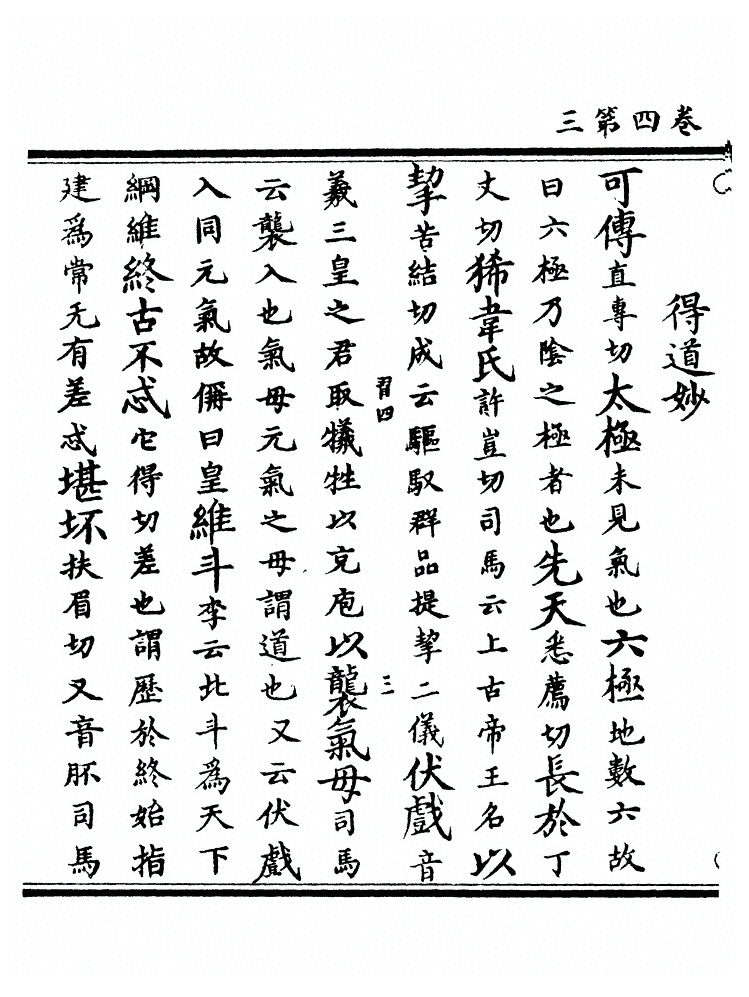 三第四卷
得道妙
可傳直專切太極未見氣也六極地數六故
曰六極乃陰之極者也先天悉薦切長於丁
丈切狶韋氏許豈切司馬云上古帝王名以
挈苦結切成云驅馭群品提挈二儀伏戲音
習四
三
羲三皇之君取犧牲以充庖以襲氣母司馬
云襲入也氣母元氣之母謂道也又云伏戲
入同元氣故偁曰皇維斗李云北斗爲天下
綱維終古不忒它得切差也謂歷於終始指
建爲常无有差忒堪坏扶眉切又音胚司馬